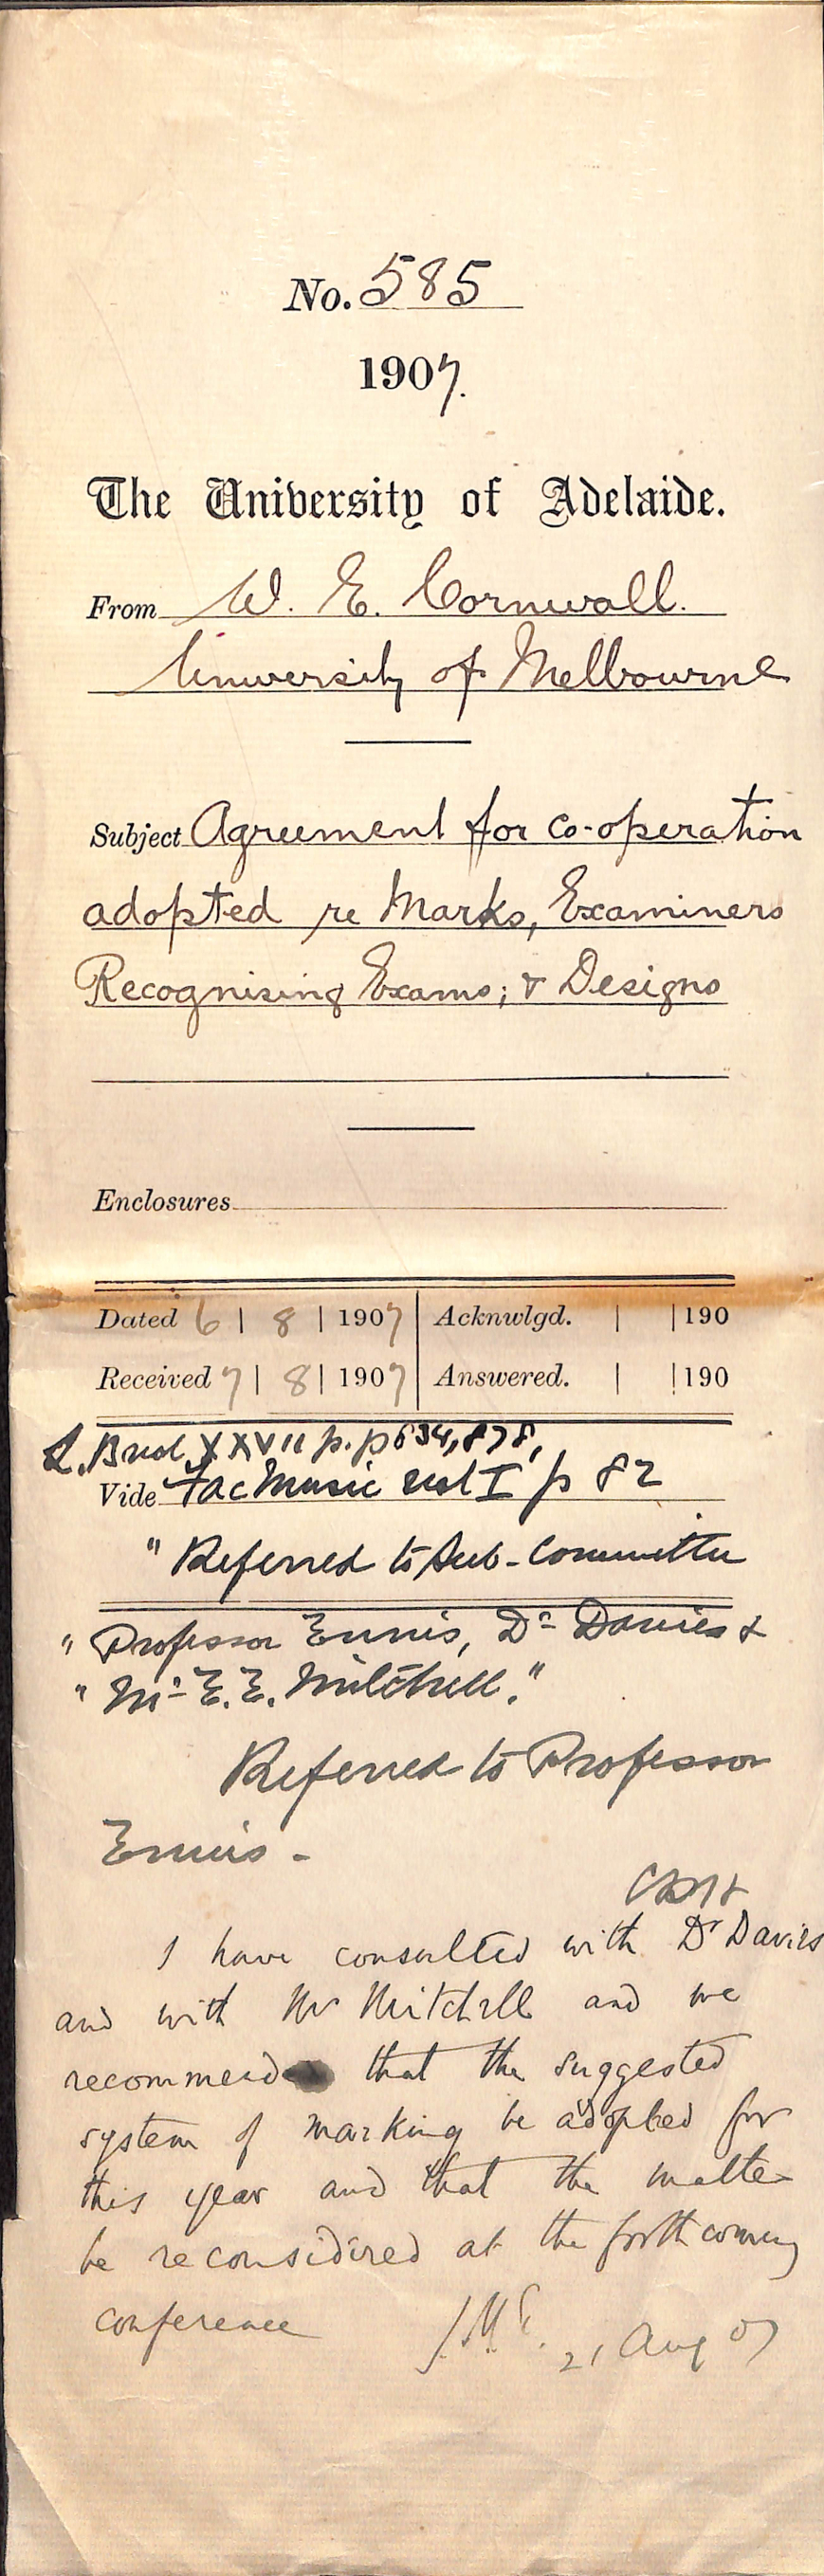 No. 585
1907.
The University of Adelaide.
From W. E. Cornwall.
University of Melbourne
Subject Agreement for co-operation
adopted re Marks, Examiners
Recognising Exams; & Designs
Enclosures
Dated 6 | 8 | 1907 Acknwlgd. | | 190
Received 7 | 8 | 1907 Answered. | | 190
L. Book XXVII p.p 634, 878,
Vide Fac Music vol I p 82
" Referred to Sub-Committee
" Professor Ennis, Dr Davies &
" Mr E. E. Mitchell."
Referred to Professor
Ennis -
I have consulted with Dr Davies
and with Mr Mitchell and we
recommend that the suggested
system of marking be adopted for
this year and that the matter
be reconsidered at the forthcoming
conference J.M.E. 21 Aug 07